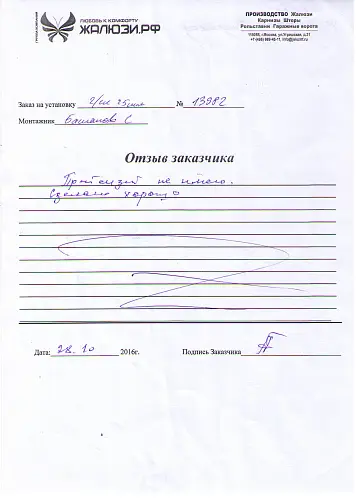 ЛЮБОВЬ К КОМФОРТУ
ЖАЛЮЗИ.РФ
ПРОИЗВОДСТВО Жалюзи
Карнизы Шторы
Рольставни Гаражные ворота
Заказ на установку г/ж 25мм № 13982
Монтажник
Отзыв заказчика
Претензий не имею.
Сделано хорошо
Дата: 28.10 2016г.
Подпись Заказчика